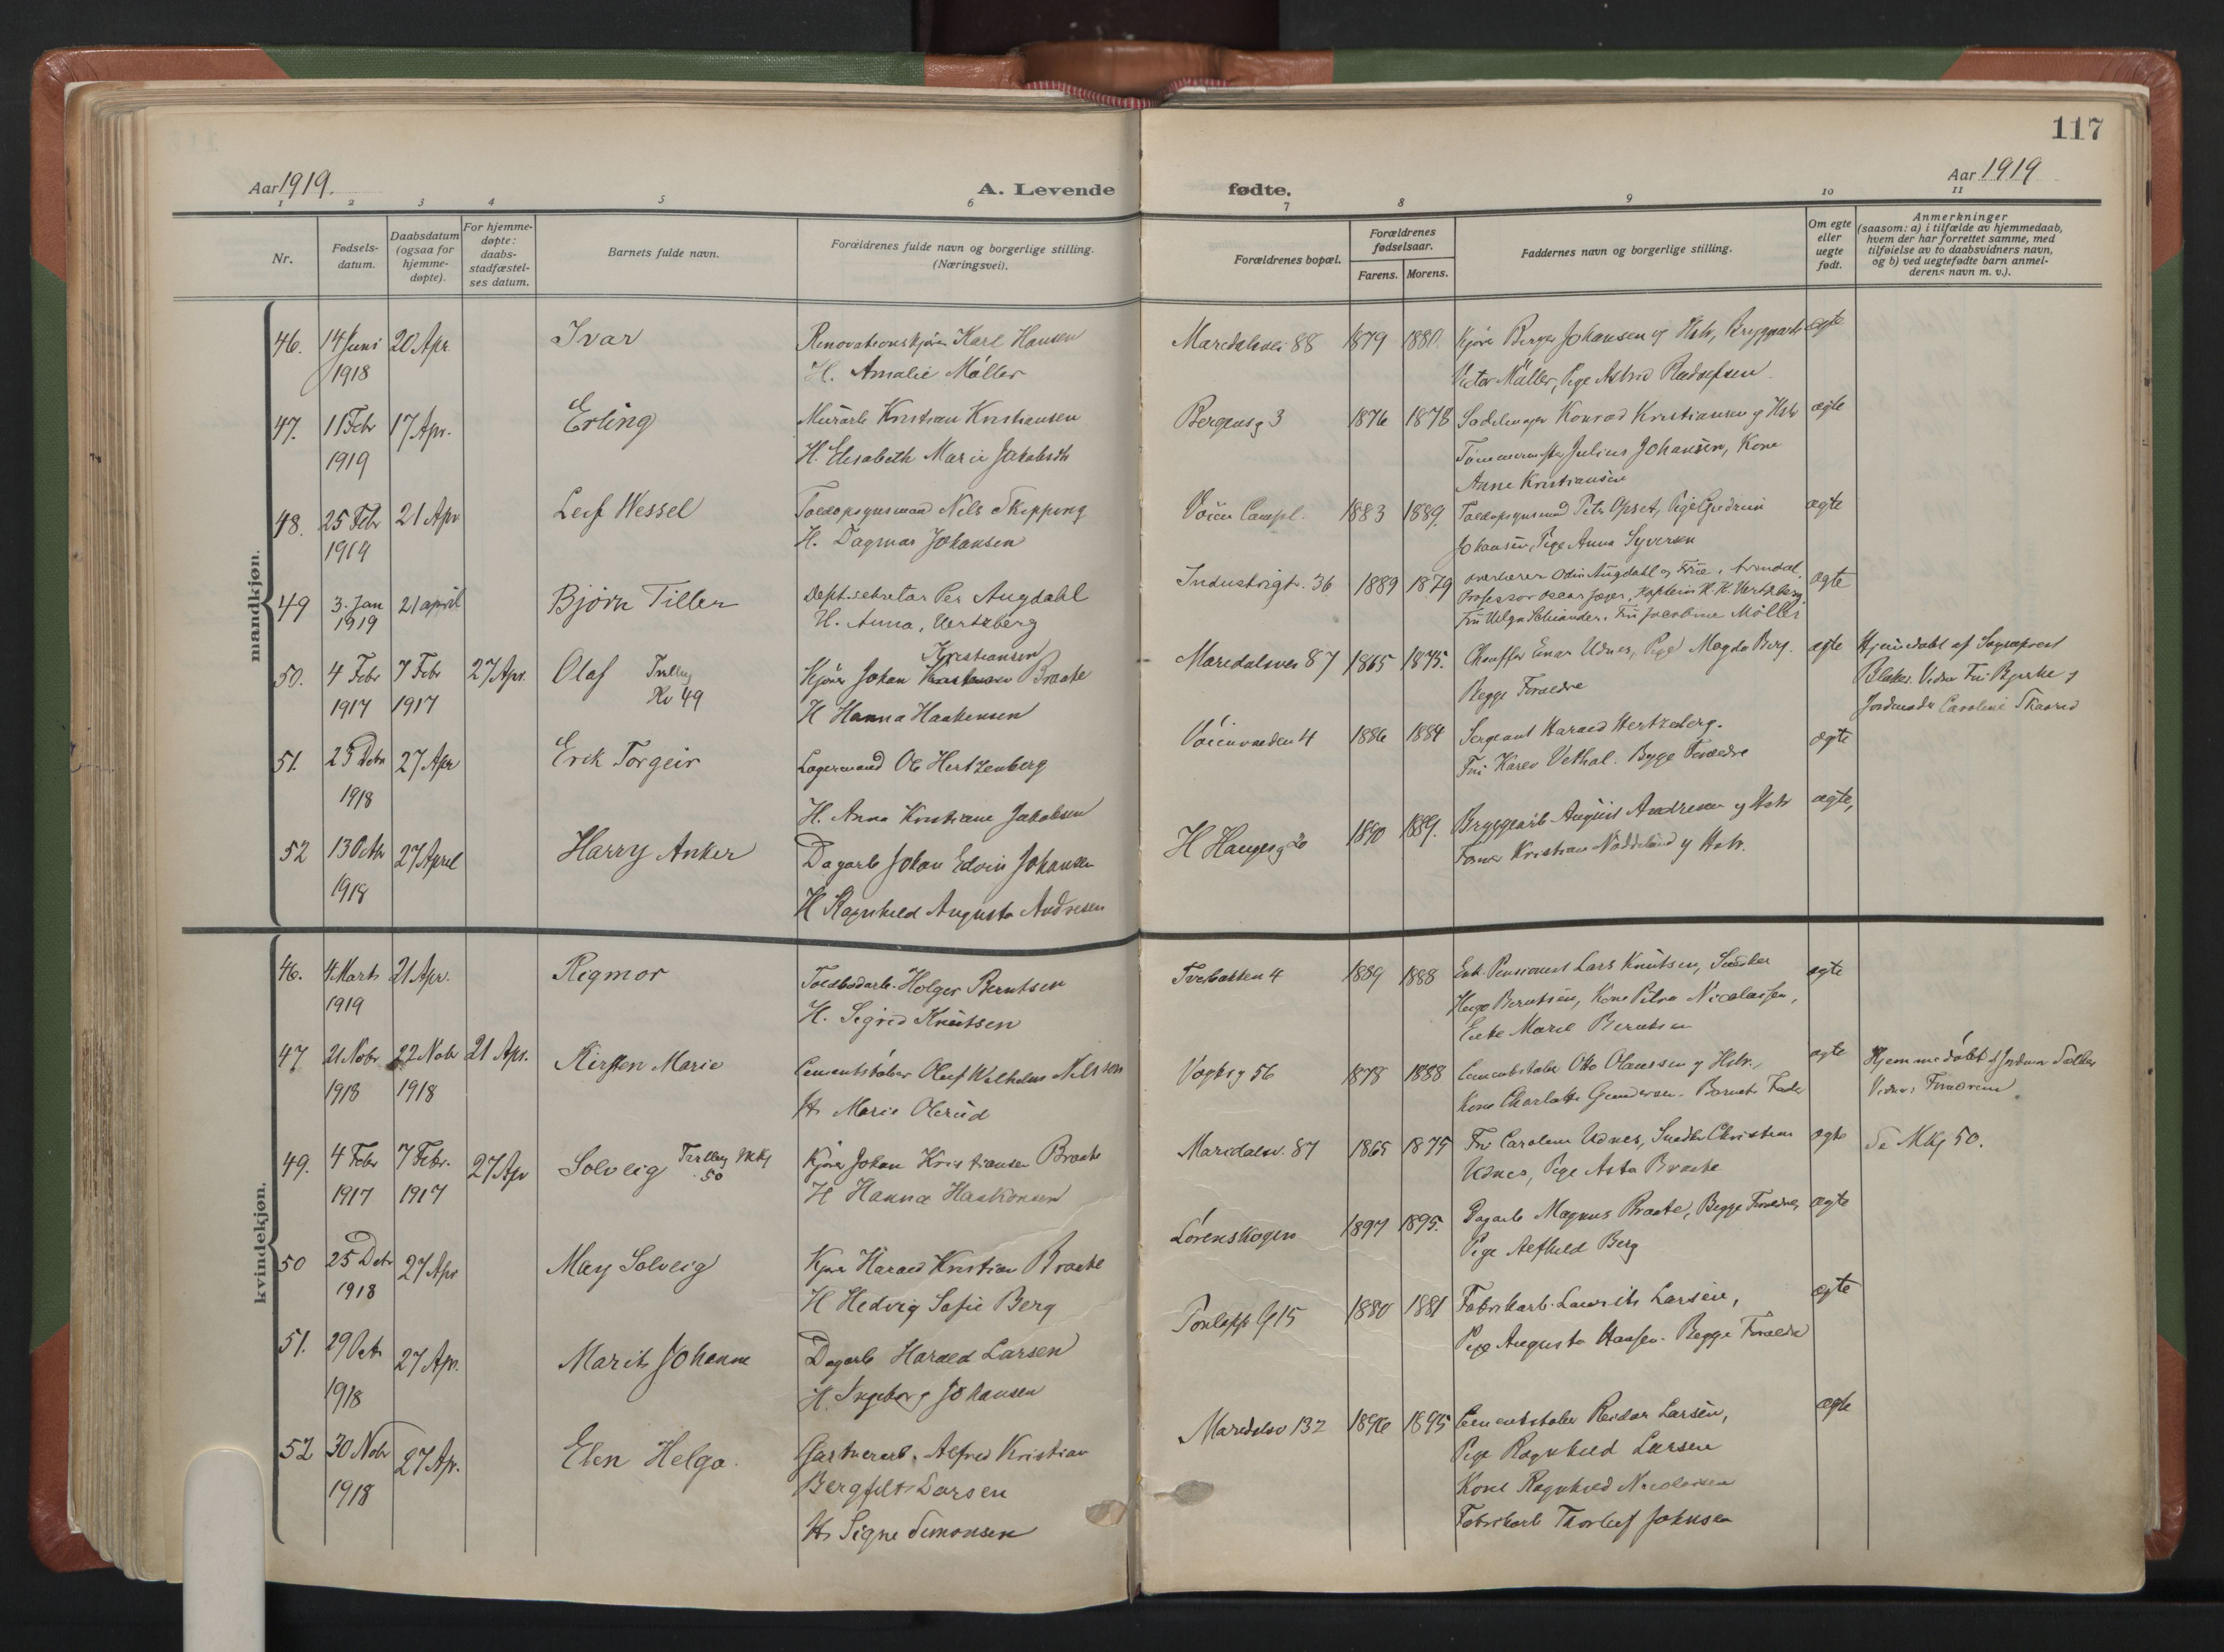 117
Aar 1919.
A. Levende
fødte.
Aar 1919
1 2 3 4 5 6 7 8 9 10 11
Nr.
Fødsels-
datum.
Daabsdatum
(ogsaa for
hjemme-
døpte).
For hjemme-
døpte:
daabs-
stadfæstel-
ses datum.
Barnets fulde navn.
Forældrenes fulde navn og borgerlige stilling.
(Næringsvei).
Forældrenes bopæl.
Forældrenes
fødselsaar.
Farens. Morens.
Faddernes navn og borgerlige stilling.
Om egte
eller
uegte
født.
Anmerkninger
(saasom: a) i tilfælde av hjemmedaab,
hvem der har forrettet samme, med
tilføielse av to daabsvidners navn,
og b) ved uegtefødte barn anmel-
derens navn m. v.).
mandkjøn.
46. 14 Juni 20 Apr. Ivar Renovationskjører Karl Hansen Maridalsvei 88 1879 1880. Kjører Birger Johansen og Hstr, Bryggearb ægte
1918 H. Amalie Møller Victor Møller, Pige Astrid Rudolfsen
47. 11 Febr 17 Apr. Erling Murarb Kristian Kristiansen Bergensg 3 1876 1878 Sadelmager Konrad Kristiansen og Hstr ægte
1919 H. Elisabeth Marie Jakobsdtr Tømmermester Julius Johansen, Kone
Anne Kristiansen
48. 25 Febr 21 Apr Leif Wessel Toldopsynsmand Nils Skipping Voien Campl. 1883 1889. Toldopsynsmand Petr Opset, Pige Gudrun ægte
1919 H. Dagmar Johansen Johansen, Pige Anna Syversen
49 3. Jan 21 april Bjørn Tiller Dept.sekretær Per Augdahl Industrigt. 36 1889 1879 overlærer Odin Augdahl og Frue, Arendal, ægte
1919 H. Anna, Hertzberg Professor Oscar Jæger, Kaptein H. K. Hertzberg,
Fru Helga Schiander, Fru Jacobine Møller
50. 4 Febr 7 Febr 27 Apr. Olaf Tvilling Kjører Johan Kristiansen Braate Maridalsvei 87 1865 1875. Chauffør Einar Udnes, Pige Magda Berg. ægte Hjemdøbt af Sognepræst
1917 1917 Kv 49 H Hanna Haakensen Begge Forældre Blaker. Vidner Fru Bjerke og
Jordmoder Caroline Skaared
51. 25 Debr 27 Apr Erik Torgeir Lagermand Ole Hertzenberg Voienvolden 4 1886 1884 Sergeant Harald Hertzenberg. ægte
1918 H. Anna Kristiane Jakobsen Fru Karen Vethal. Begge Forældre
52 13 Octbr 27 April Harry Anker Dagarb Johan Edvin Johansen H Haugesg 20 1890 1889. Bryggearb August Andresen og Hstr ægte,
1918 H Ragnhild Augusta Andresen Former Kristian Nøddelund og Hstr.
kvindekjøn.
46. 4 Marts 21 Apr. Rigmor Toldbodarb. Holger Berntsen Tvebakken 4 1889 1888 Enk. Pensionist Lars Knutsen, Snedker ægte
1919 H. Sigrid Knutsen Hugo Berntsen, Kone Petra Nicolaisen,
Enke Marie Berntsen
47 21 Nobr 22 Nobr 21 Apr. Kirsten Marie Cementstøber Oluf Wilhelm Nilssen Vogtsg 56 1878 1888 Cementstøber Otto Olaussen og Hstr., ægte Hjemmedøbt af Jordmor
1918 1918 H. Marie Olerud Kone Charlotte Gundersen. Barnets Fader Vidner: Forældrene
49. 4 Febr 7 Febr. 27 Apr Solveig Tvilling Mkj Kjører Johan Kristiansen Braate Maridalsv. 87 1865 1875 Fru Caroline Udnes, Snedker Christian ægte Se Mkj 50.
1917 1917 50 H Hanna Haakonsen Udnes, Pige Asta Braate
50 25 Debr 27 Apr May Solveig Kjører Harald Kristian Braate Lørenskogen 1897 1895. Dagarb Magnus Braate, Begge Forældre, ægte
1918 H Hedvig Sofie Berg Pige Alfhild Berg
51. 29 Oct 27 Apr. Marit Johanne Dagarb Harald Larsen 15 1880 1881 Fabrikarb. Laurits Larsen, ægte
1918 H. Ingeborg Johansen Pige Augusta Hansen. Begge Forældre
52 30 Nobr 27 Apr. Elen Helga. Gartnerarb. Alfred Kristian Maridalsv 132 1896 1895 Cementstøber Reidar Larsen, ægte
1918 Bergfelt Larsen Pige Ragnhild Larsen
H. Signe Simonsen Kone Ragnhild Nicolaisen
Fabrikarb Thorleif Johnsen